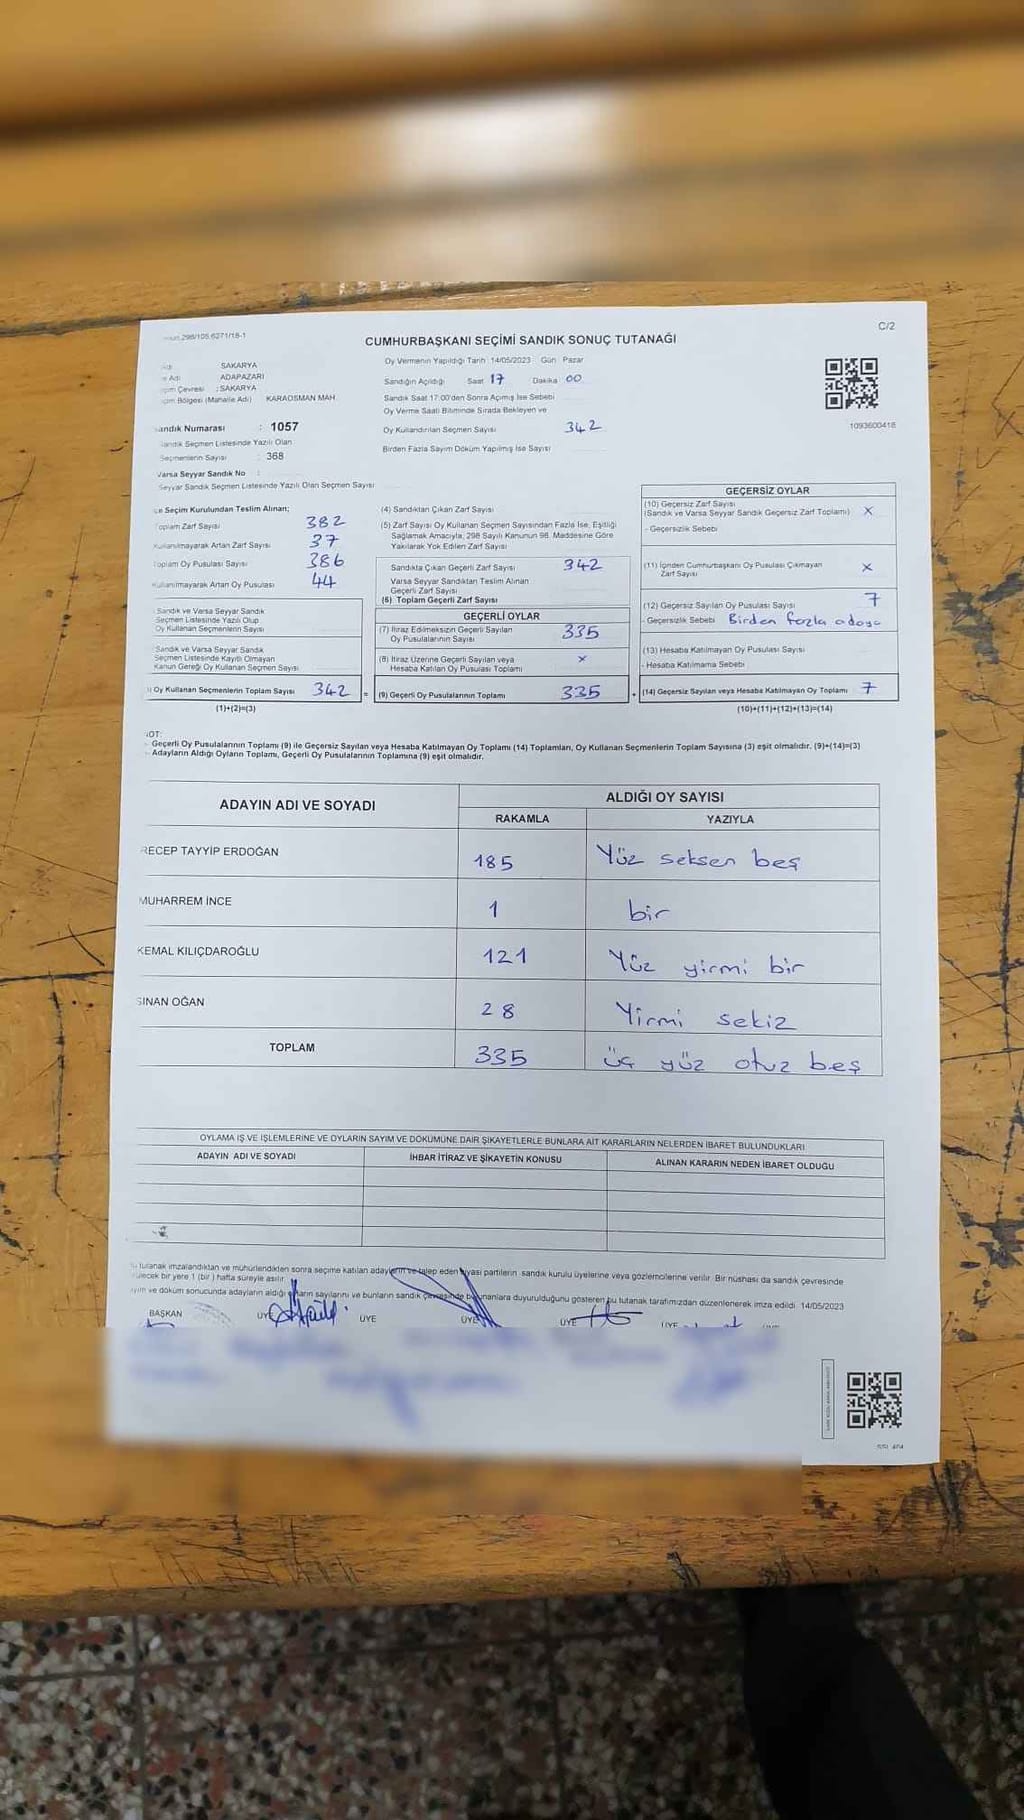 298/105.6271/18-1
C/2
CUMHURBAŞKANI SEÇİMİ SANDIK SONUÇ TUTANAĞI
SAKARYA
Adı ADAPAZARI
Çevresi : SAKARYA
Bölgesi (Mahalle Adı) KARAOSMAN MAH.
Sandık Numarası : 1057
Sandık Seçmen Listesinde Yazılı Olan
Seçmenlerin Sayısı : 368
Varsa Seyyar Sandık No :
Seyyar Sandık Seçmen Listesinde Yazılı Olan Seçmen Sayısı
Oy Vermenin Yapıldığı Tarih 14/05/2023 Gün Pazar
Sandığın Açıldığı Saat 17 Dakika 00
Sandık Saat 17:00'den Sonra Açımış İse Sebebi
Oy Verme Saati Bitiminde Sırada Bekleyen ve
Oy Kullandırılan Seçmen Sayısı 342
Birden Fazla Sayım Döküm Yapılmış İse Sayısı
1093600418
Seçim Kurulundan Teslim Alınan;
Toplam Zarf Sayısı 382
Kullanılmayarak Artan Zarf Sayısı 37
Toplam Oy Pusulası Sayısı 386
Kullanılmayarak Artan Oy Pusulası 44
Sandık ve Varsa Seyyar Sandık
Seçmen Listesinde Yazılı Olup
Oy Kullanan Seçmenlerin Sayısı
Sandık ve Varsa Seyyar Sandık
Seçmen Listesinde Kayıtlı Olmayan
Kanun Gereği Oy Kullanan Seçmen Sayısı
Oy Kullanan Seçmenlerin Toplam Sayısı 342 =
(1)+(2)=(3)
(4) Sandıktan Çıkan Zarf Sayısı
(5) Zarf Sayısı Oy Kullanan Seçmen Sayısından Fazla İse, Eşitliği
Sağlamak Amacıyla, 298 Sayılı Kanunun 98. Maddesine Göre
Yakılarak Yok Edilen Zarf Sayısı
Sandıkta Çıkan Geçerli Zarf Sayısı 342
Varsa Seyyar Sandıktan Teslim Alınan
Geçerli Zarf Sayısı
(6) Toplam Geçerli Zarf Sayısı
GEÇERLİ OYLAR
(7) İtiraz Edilmeksizin Geçerli Sayılan 335
Oy Pusulalarının Sayısı
(8) İtiraz Üzerine Geçerli Sayılan veya x
Hesaba Katılan Oy Pusulası Toplamı
(9) Geçerli Oy Pusulalarının Toplamı 335 +
GEÇERSİZ OYLAR
(10) Geçersiz Zarf Sayısı
(Sandık ve Varsa Seyyar Sandık Geçersiz Zarf Toplamı) X
- Geçersizlik Sebebi
(11) İçinden Cumhurbaşkanı Oy Pusulası Çıkmayan X
Zarf Sayısı
(12) Geçersiz Sayılan Oy Pusulası Sayısı 7
- Geçersizlik Sebebi Birden fazla adaya
(13) Hesaba Katılmayan Oy Pusulası Sayısı
- Hesaba Katılmama Sebebi
(14) Geçersiz Sayılan veya Hesaba Katılmayan Oy Toplamı 7
(10)+(11)+(12)+(13)=(14)
NOT:
- Geçerli Oy Pusulalarının Toplamı (9) ile Geçersiz Sayılan veya Hesaba Katılmayan Oy Toplamı (14) Toplamları, Oy Kullanan Seçmenlerin Toplam Sayısına (3) eşit olmalıdır. (9)+(14)=(3)
- Adayların Aldığı Oyların Toplamı, Geçerli Oy Pusulalarının Toplamına (9) eşit olmalıdır.
ADAYIN ADI VE SOYADI ALDIĞI OY SAYISI
RAKAMLA YAZIYLA
RECEP TAYYİP ERDOĞAN 185 Yüz seksen beş
MUHARREM İNCE 1 bir
KEMAL KILIÇDAROĞLU 121 Yüz yirmi bir
SİNAN OĞAN 28 Yirmi sekiz
TOPLAM 335 üç yüz otuz beş
OYLAMA İŞ VE İŞLEMLERİNE VE OYLARIN SAYIM VE DÖKÜMÜNE DAİR ŞİKAYETLERLE BUNLARA AİT KARARLARIN NELERDEN İBARET BULUNDUKLARI
ADAYIN ADI VE SOYADI İHBAR İTİRAZ VE ŞİKAYETİN KONUSU ALINAN KARARIN NEDEN İBARET OLDUĞU
tutanak imzalandıktan ve mühürlendikten sonra seçime katılan adayların ve talep eden siyasi partilerin sandık kurulu üyelerine veya gözlemcilerine verilir. Bir nüshası da sandık çevresinde
bir yere 1 (bir) hafta süreyle asılır.
ve döküm sonucunda adayların aldığı oyların sayılarını ve bunların sandık çevresinde bulunanlara duyurulduğunu gösteren bu tutanak tarafımızdan düzenlenerek imza edildi. 14/05/2023
BAŞKAN ÜYE ÜYE ÜYE ÜYE ÜYE